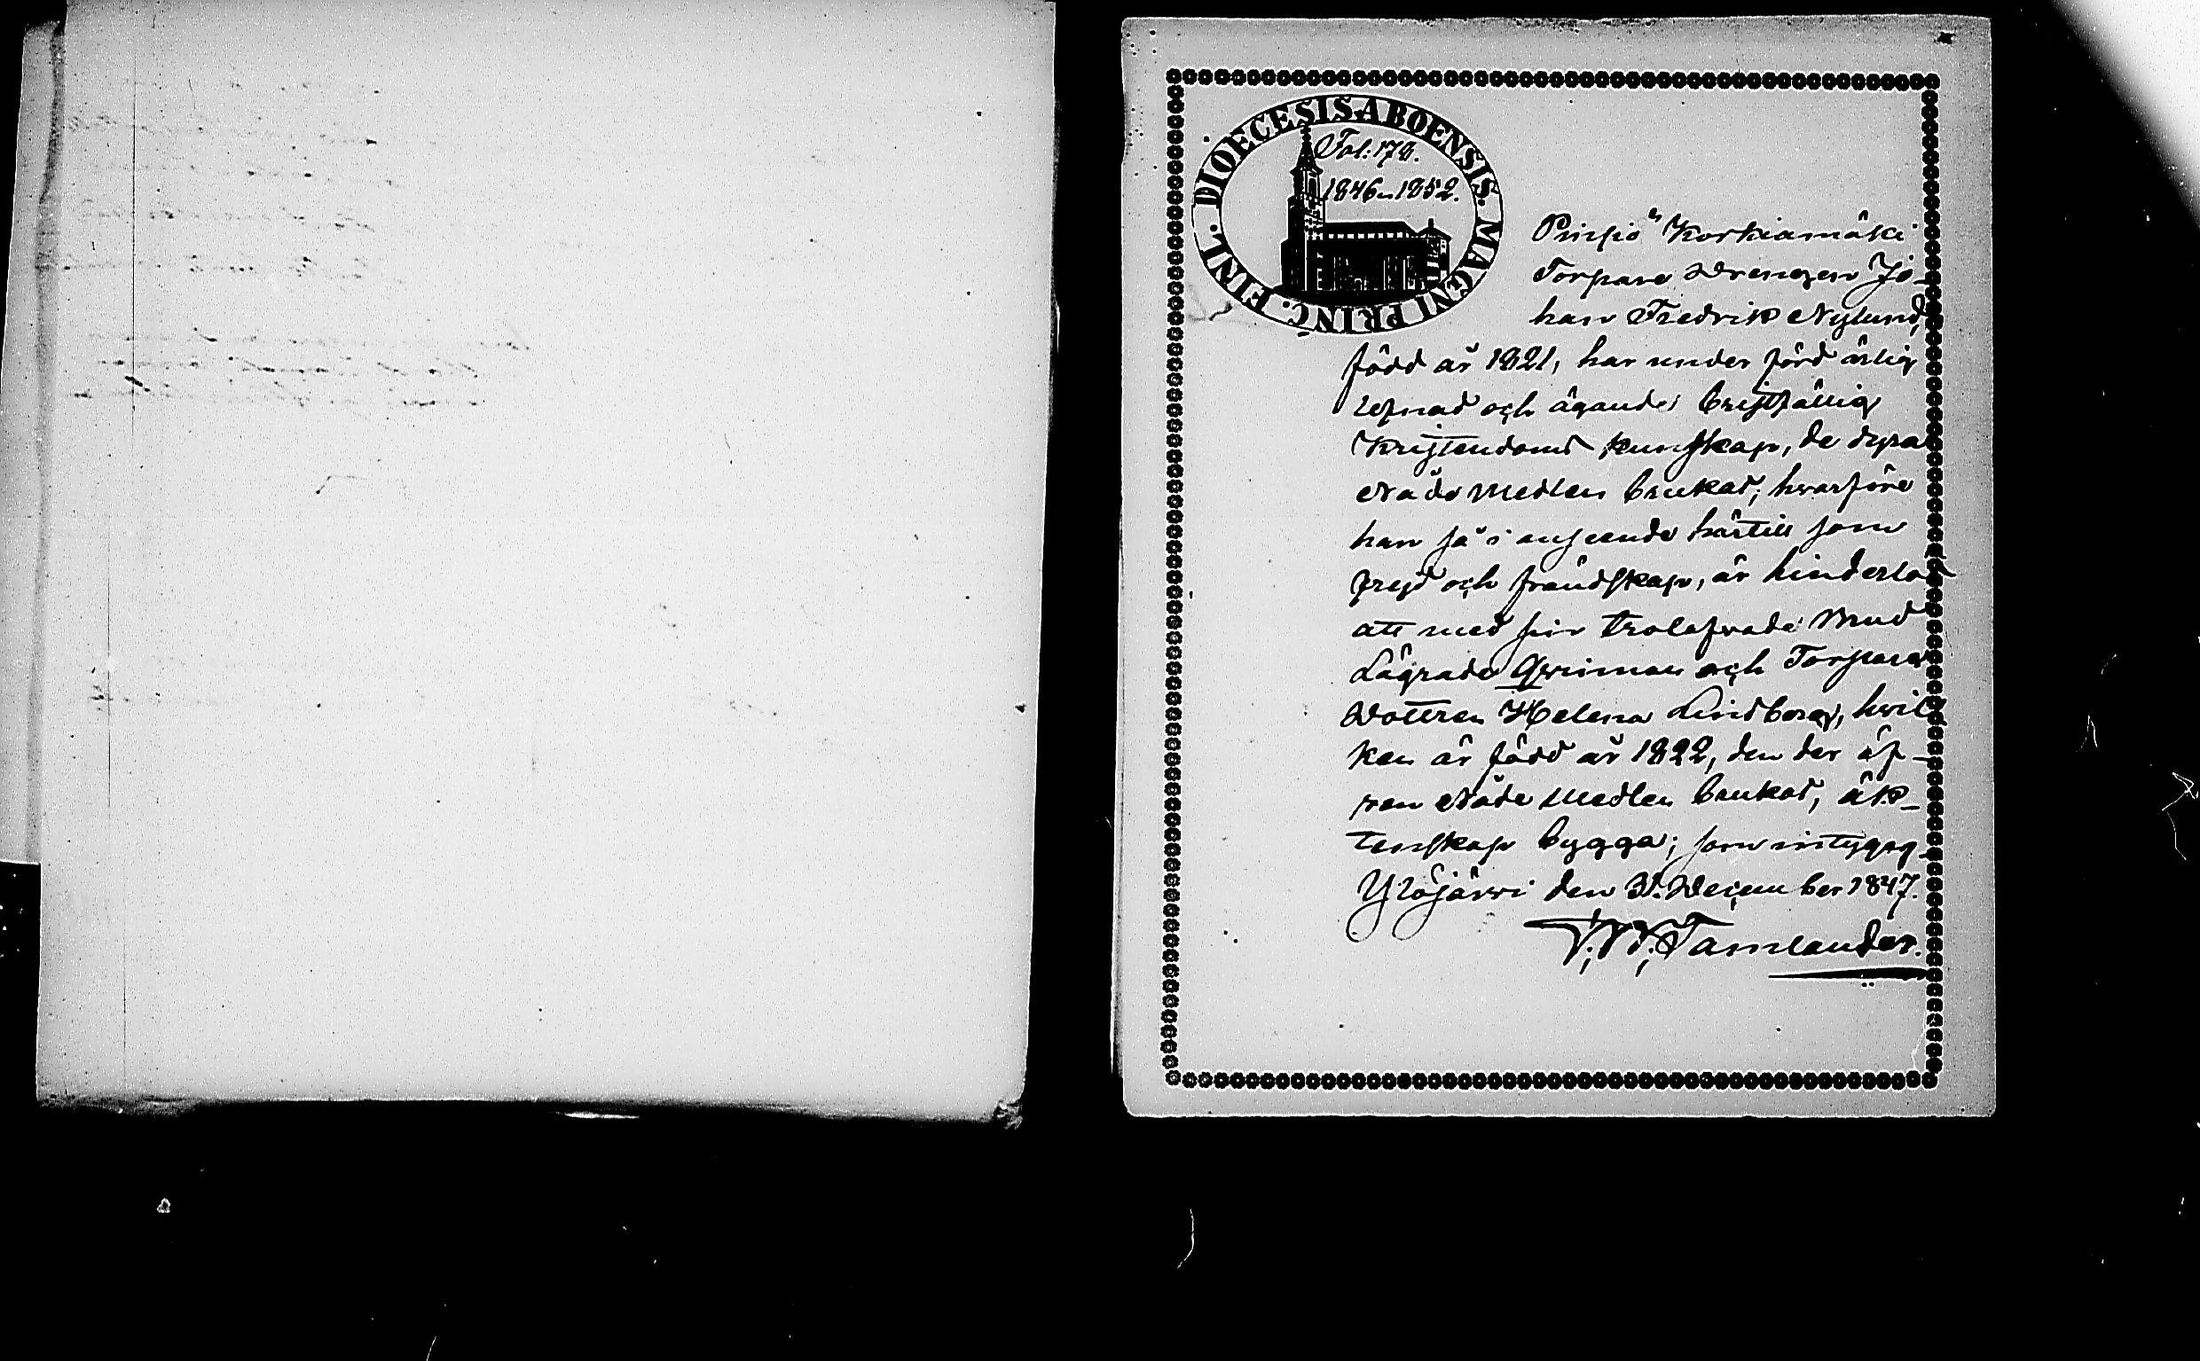 DIOECESIS ABOENSIS. MAGNI PRINC. FINL.
Fol: 178.
1846–1852.
Pinsiö Korkiamäki
Torpare Drengen Jo-
han Fredrik Nylund,
född år 1821, har under förd ärlig
lefnad och ägande bristfällig
Kristendoms kunskap, de dyra
Nåde Medlen brukat; hvarföre
han så i anseende härtill som
frejd och frändskap, är hinderlös
att med sin trolofvade Brud
Lägrade Qvinnan och Torpare
Dottren Helena Lindborg, hvil-
ken är född år 1822, den der äf-
ven Nåde Medlen brukat, äk-
tenskap bygga; som intygas
Ylöjärvi den 31. December 1847.
Tamlander.